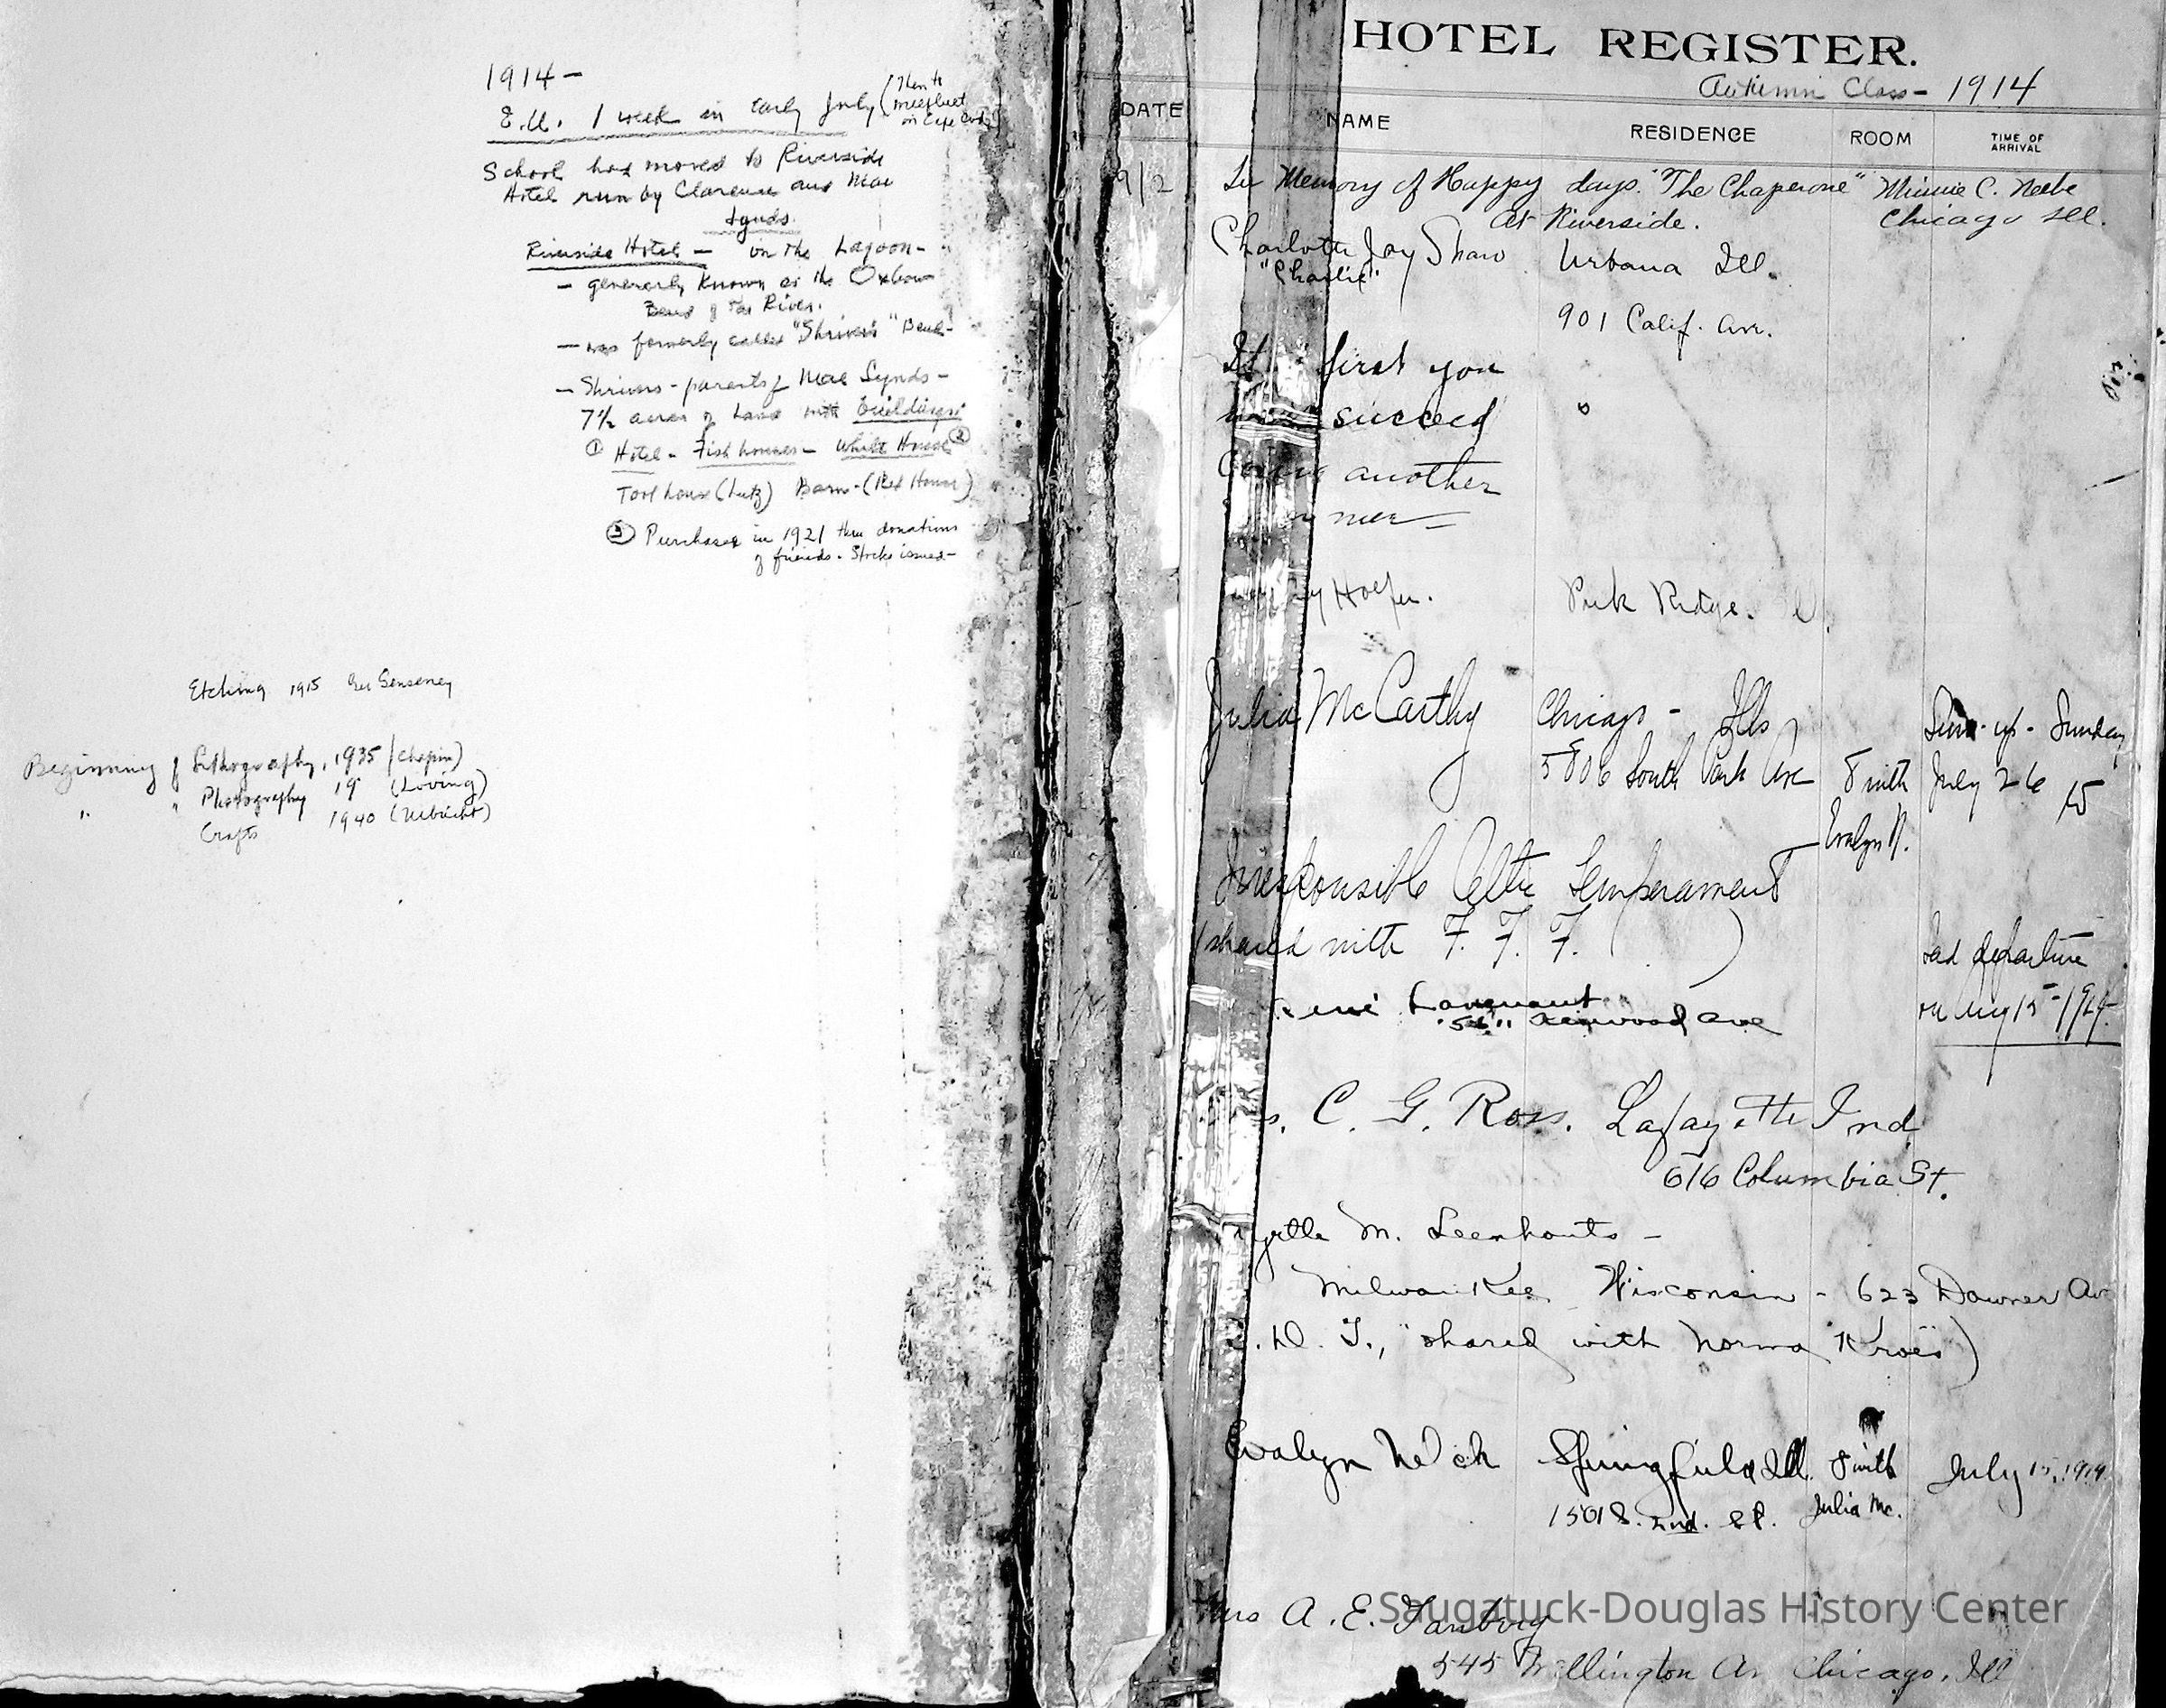 1914 -
E.U. 1 week in early July (Then to
on Cape
School had moved to Riverside
Hotel run by Clarence and Mae
Synds.
Riverside Hotel - on the Lagoon -
- generally known as the Oxbow
Bend of the River.
- was formerly called "Shriver's" Bend -
- Shrivers - parents of Mae Synds -
7½ acres of Land with buildings:
① Hotel - Fish houses - White House ②
Tool house (Lutz) Barn - (Red House)
③ Purchased in 1921 thru donations
of friends. Stocks issued -
Etching 1915 Geo Senseney
Beginning of Lithography, 1935 (Chapin)
" " Photography 19 (Loving)
Crafts 1940 (Ulbricht)
HOTEL REGISTER.
Autumn Class - 1914
DATE NAME RESIDENCE ROOM TIME OF ARRIVAL
9/2 In Memory of Happy days. "The Chaperone" Minnie C. Neebe
At Riverside. Chicago Ill.
Charlotte Jay Shaw Urbana Ill.
"Charlie"
901 Calif. Ave.
If first you
succeed
another
Park Ridge.
Julia McCarthy Chicago - Ills Sun-up - Sunday
5806 South Park Ave 8 with July 26 15
Evalyn N.
Irresponsible Celtic Temperament
(shared with F. F. F. ) Sad departure
on Aug 15 - 1914.
Ainwood Ave
C. G. Ross. Lafayette Ind
616 Columbia St.
Myrtle M. Leenhouts -
Milwaukee Wisconsin - 623 Downer Av
D. T., "shared with Norma Kroes")
Evalyn Welch Springfield Ill. 8 with July 15, 1914
1501 S. 2nd. St. Julia Mc.
Mrs A. E. Hanberg
545 Wellington Av Chicago, Ill
Saugatuck-Douglas History Center